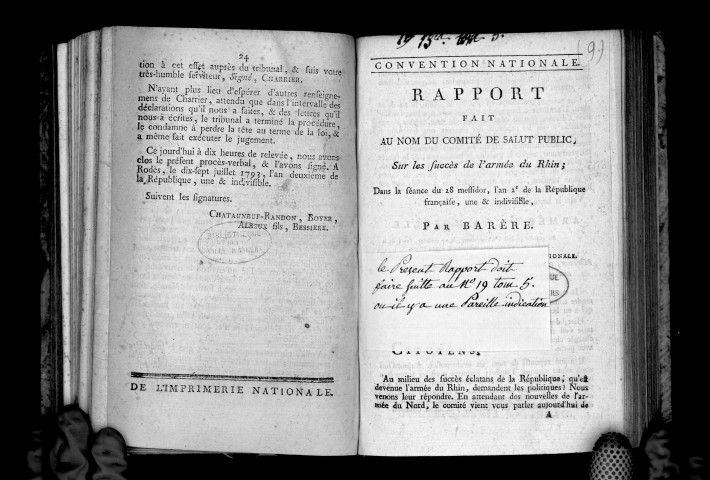 24
tion à cet effet auprès du tribunal, & suis votre
très-humble serviteur, Signé, CHARRIER.
N'ayant plus lieu d'espérer d'autres renseigne-
mens de Charrier, attendu que dans l'intervalle des
déclarations qu'il nous a faites, & des lettres qu'il
nous a écrites, le tribunal a terminé la procédure,
le condamne à perdre la tête au terme de la loi, &
a même fait exécuter le jugement.
Ce jourd'hui à dix heures de relevée, nous avons
clos le présent procès-verbal, & l'avons signé. A
Rodès, le dix-sept juillet 1793, l'an deuxième de
la République, une & indivisible.
Suivent les signatures.
CHATAUNEUF-RANDON, BOYER,
ALRIUX fils, BESSIERE.
BIBLIOTHEQUE
DE L'IMPRIMERIE NATIONALE.
19
5.
(9.)
CONVENTION NATIONALE.
RAPPORT
FAIT
AU NOM DU COMITÉ DE SALUT PUBLIC,
Sur les succès de l'armée du Rhin;
Dans la séance du 28 messidor, l'an 2e de la République
française, une & indivisible,
PAR BARÈRE.
IONALE.
le Present Rapport doit
faire suitte au No 19 tom 5.
ou il y a une Pareille indication
CITOYENS,
Au milieu des succès éclatans de la République, qu'est
devenue l'armée du Rhin, demandent les politiques? Nous
venons leur répondre. En attendant des nouvelles de l'ar-
mée du Nord, le comité vient vous parler aujourd'hui de
A